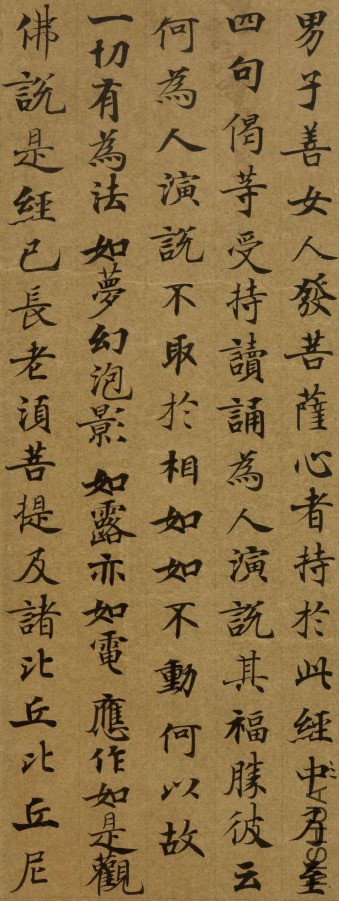 男子善女人發菩薩心者持於此經中乃至
四句偈等受持讀誦為人演說其福勝彼云
何為人演說不取於相如如不動何以故
一切有為法如夢幻泡影如露亦如電應作如是觀
佛說是經已長老須菩提及諸比丘比丘尼